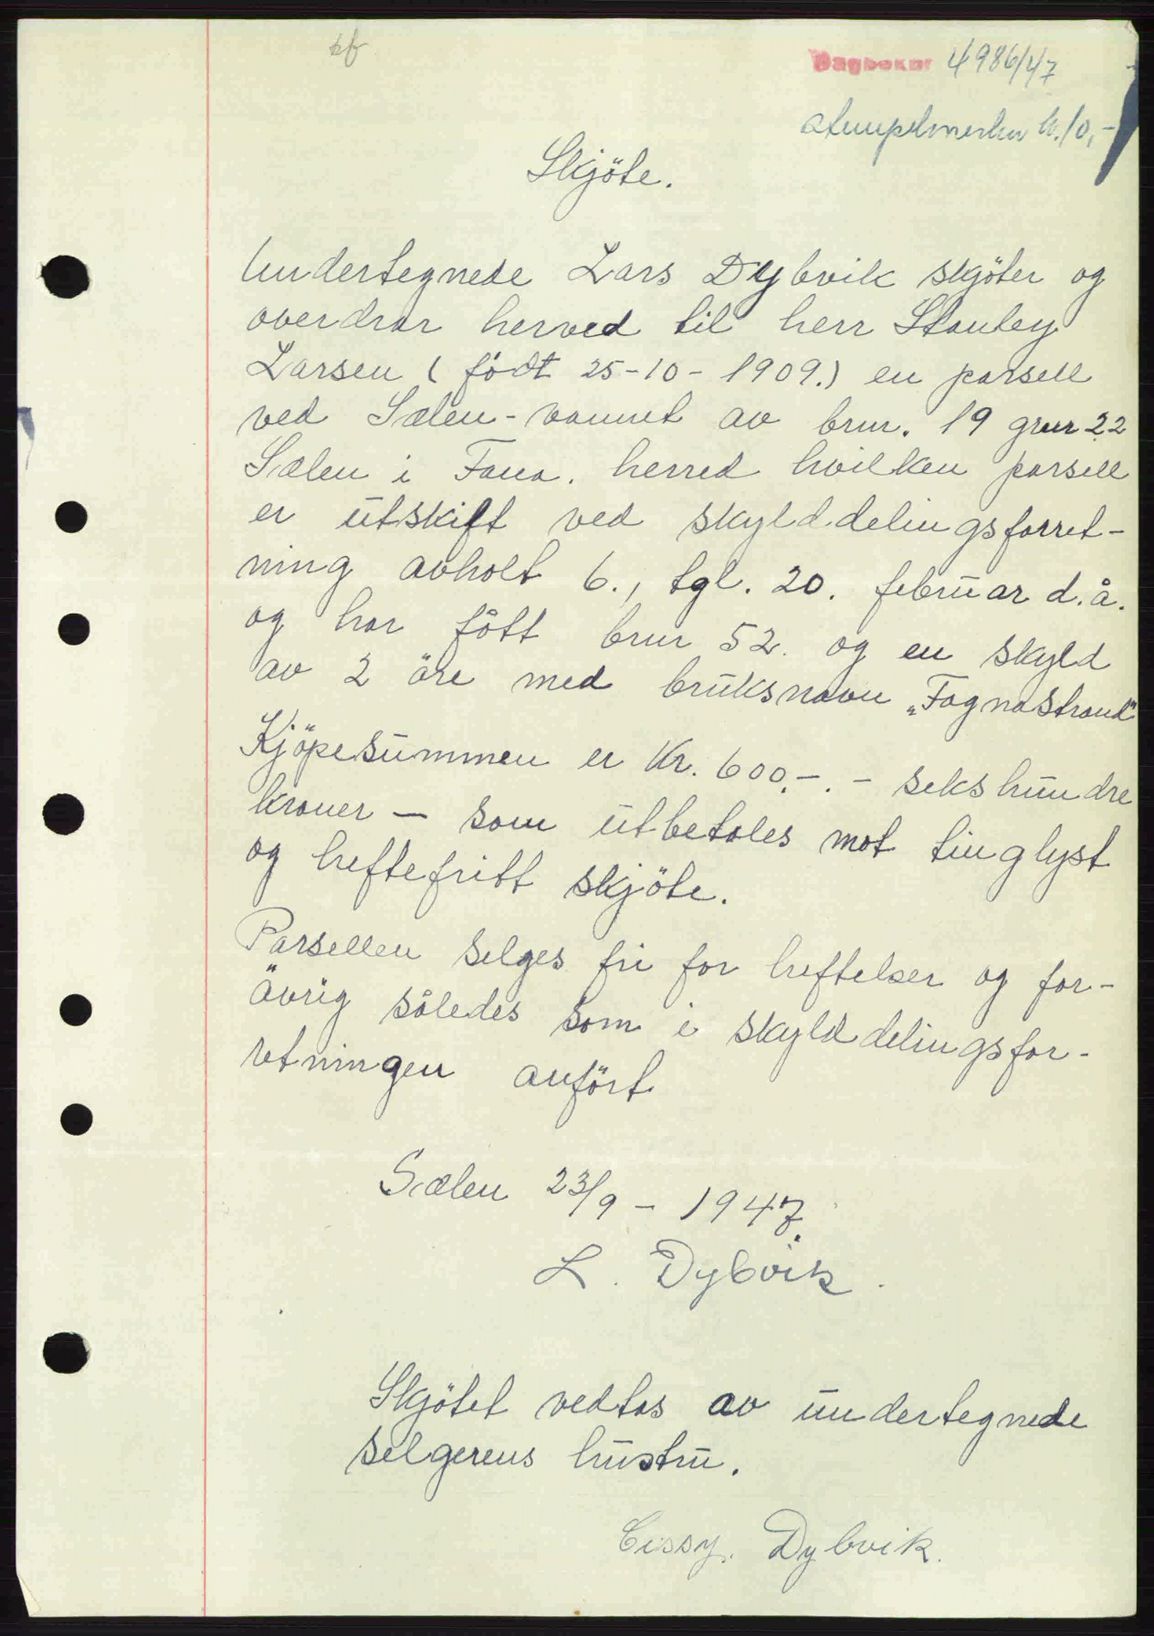 kf
Dagboknr 4986/47
Stempelmerker kr. 10,-
Skjöte.
Undertegnede Lars Dybvik skjöter og
overdrar herved til herr Stanley
Larsen ( födt 25-10-1909.) en parsell
ved Sælen-vannet av brnr. 19 gnr 22
Sælen i Fana. herred hvilken parsell
er utskilt ved skylddelingsforret-
ning avholt 6., tgl. 20. februar d.å.
og har fått brnr 52. og en skyld
av 2 öre med bruksnavn „Fagnastrand"
Kjöpesummen er Kr. 600.-. - sekshundre
kroner — som utbetales mot tinglyst
og heftefritt skjöte.
Parsellen selges fri for heftelser og for-
övrig således som i skylddelingsfor-
retningen anfört
Sælen 23/9 - 1947.
L. Dybvik.
Skjötet vedtas av undertegnede
selgerens hustru.
Cissy. Dybvik.